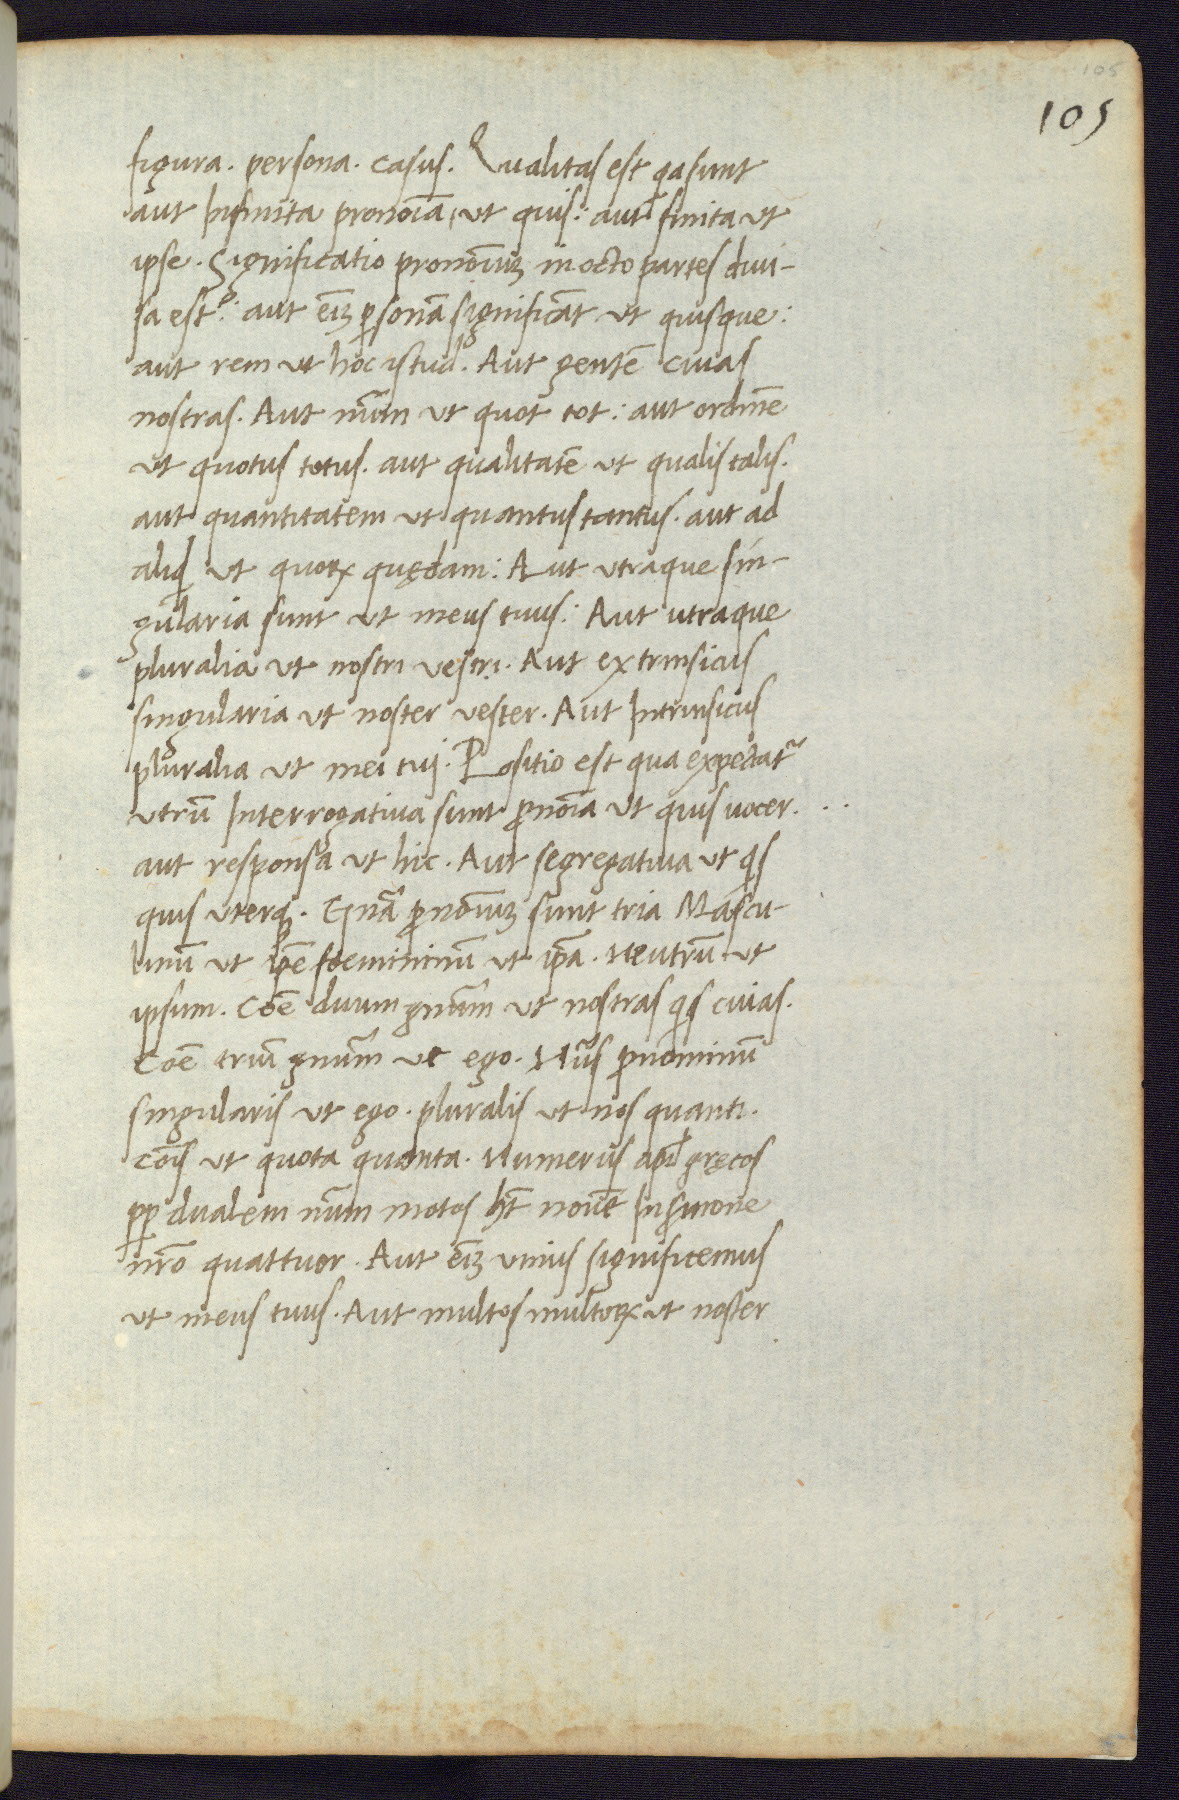 105
105
figura. persona. casus. Qualitas est qa sunt
aut Infinita pronoīa, ut quis: aut finita ut
ipse. Significatio pronoīuꝫ in octo partes diui-
sa est: aut eīꝫ ꝑsonā significāt ut quisque:
aut rem ut hoc istud. Aut gentē cuias
nostras. Aut nūm ut quot tot: aut ordinē
ut quotus totus. aut qualitatē ut qualis talis.
aut quantitatem ut quantus tantus. aut ad
aliqd ut quoꝝ quędam: Aut utraque sin-
gularia sunt ut meus tuus: Aut utraque
pluralia ut nostri vestri. Aut extrinsicus
singularia ut noster vester. Aut Intrinsicus
pluralia ut mei tuj. Positio est qua expectat᷑
utrū Interrogatiua sunt ꝓnoīa ut quis uocer. ..
aut responsa ut hic. Aut segregatiua ut qs
quis uterqꝫ. Gn̄a ꝓnoīuꝫ sunt tria Mascu-
linū ut ip̄e foemininū ut ip̄a. Neutrū ut
ipsum. Coē duum gn̄um ut nostras qs cuias.
Coē triū gn̄um ut ego. Nūs ꝓnominū
singularis ut ego. pluralis ut nos quanti.
cōis ut quota quanta. Numerus apd gręcos
ꝓp dualem nūm motos hn̄t noīe In ẜmone
nr̄o quattuor. Aut eīꝫ unius significemus
ut meus tuus. Aut multos multoꝝ ut noster